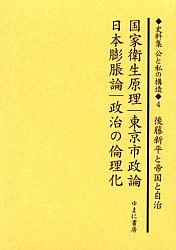 ◆史料集 公と私の構造◆4
後藤新平と帝国と自治
国家衛生原理|東京市政論
日本膨脹論|政治の倫理化
ゆまに書房